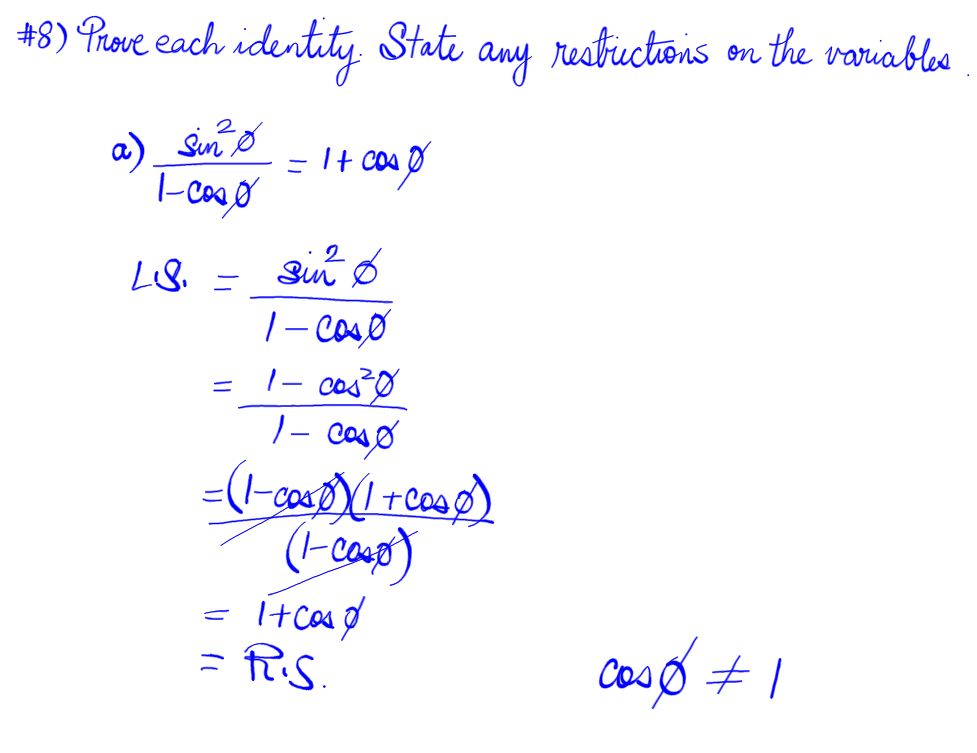 #8) Prove each identity. State any restrictions on the variables.
a) sin²ø
1-cosø
= 1+ cosø
L.S. = sin²ø
1-cosø
= 1- cos²ø
1- cosø
=(1-cosø)(1+cosø)
(1-cosø)
= 1+cosø
= R.S.
cosø ≠ 1